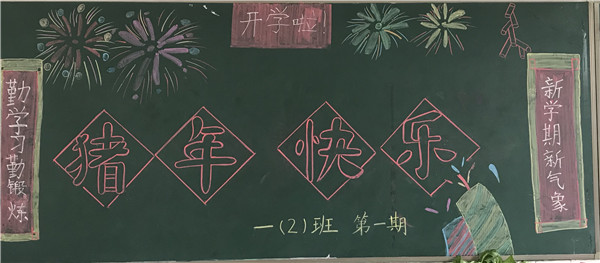 开学啦
勤学习勤锻炼
猪年快乐
新学期新气象
一(2)班 第一期